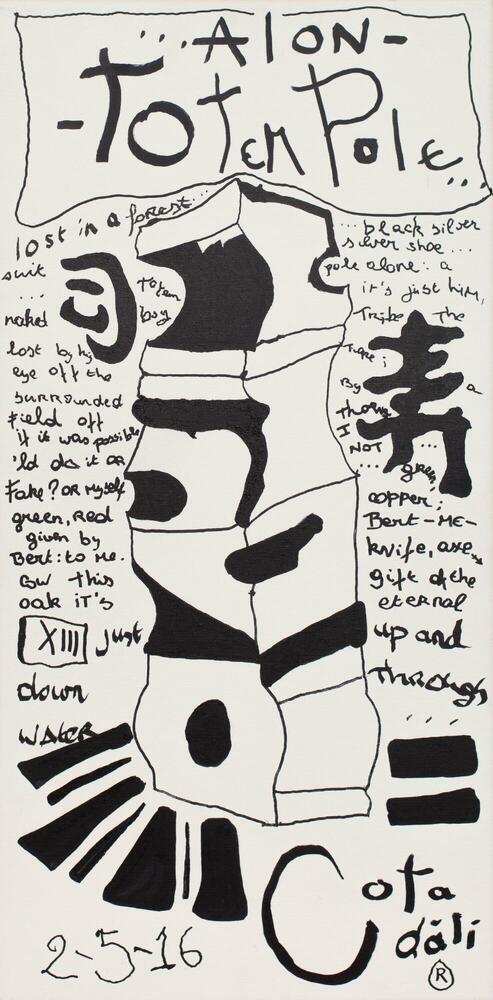 ... A I ON -
- TOTEM POLE ...
lost in a forest...
suit
...
naked
lost by his
eye off the
surrounded
Field off
if it was possible
'ld do it OR
Fake? OR Myself
green, Red
given by
Bert: to Me.
BW This
oak iT's
XIII just
down
WATER
Totem
boy
... black silver
silver shoe ...
pole alone: a
it's just him,
Tribe The
There i
By a
Thorn
I
NOT ...
... green
copper;
Bert-ME-
knife, axe,
gift of the
eternal
up and
Through
....
Cota
dáli
®
2-5-16